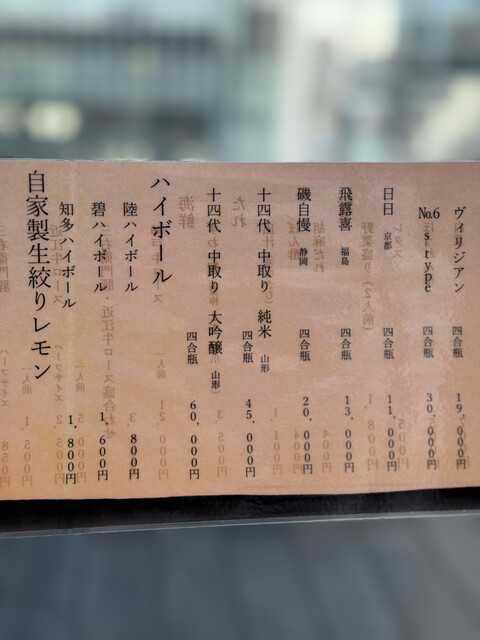 ヴィリジアン 四合瓶 19,000円
No.6 s type 四合瓶 30,000円
日日 京都 四合瓶 11,000円
飛露喜 福島 四合瓶 13,000円
磯自慢 静岡 四合瓶 20,000円
十四代 中取り 純米 山形 四合瓶 45,000円
十四代 中取り 大吟醸 山形 四合瓶 60,000円
ハイボール
陸ハイボール 800円
碧ハイボール 1,600円
知多ハイボール 1,800円
自家製生絞りレモン